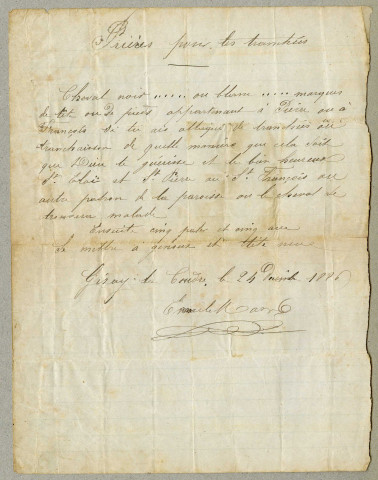 Prières pour les tranchées
Cheval noir ...... ou blanc ..... marques
de têt ou de pieds appartenant à Pierre ou à
François si tu ais attaqué de tranchées ou
tranchaison de quelle manière que cela soit
que Dieu te guérisse et le bien heureux
St. Eloi et St. Pierre ou St. François ou
autre patron de la paroisse ou le cheval se
trouvera malade.
Ensuite cinq pater et cinq ave
Se mettre à genoux et tête nue
Gisay la Coudre, le 24 1886
Emile